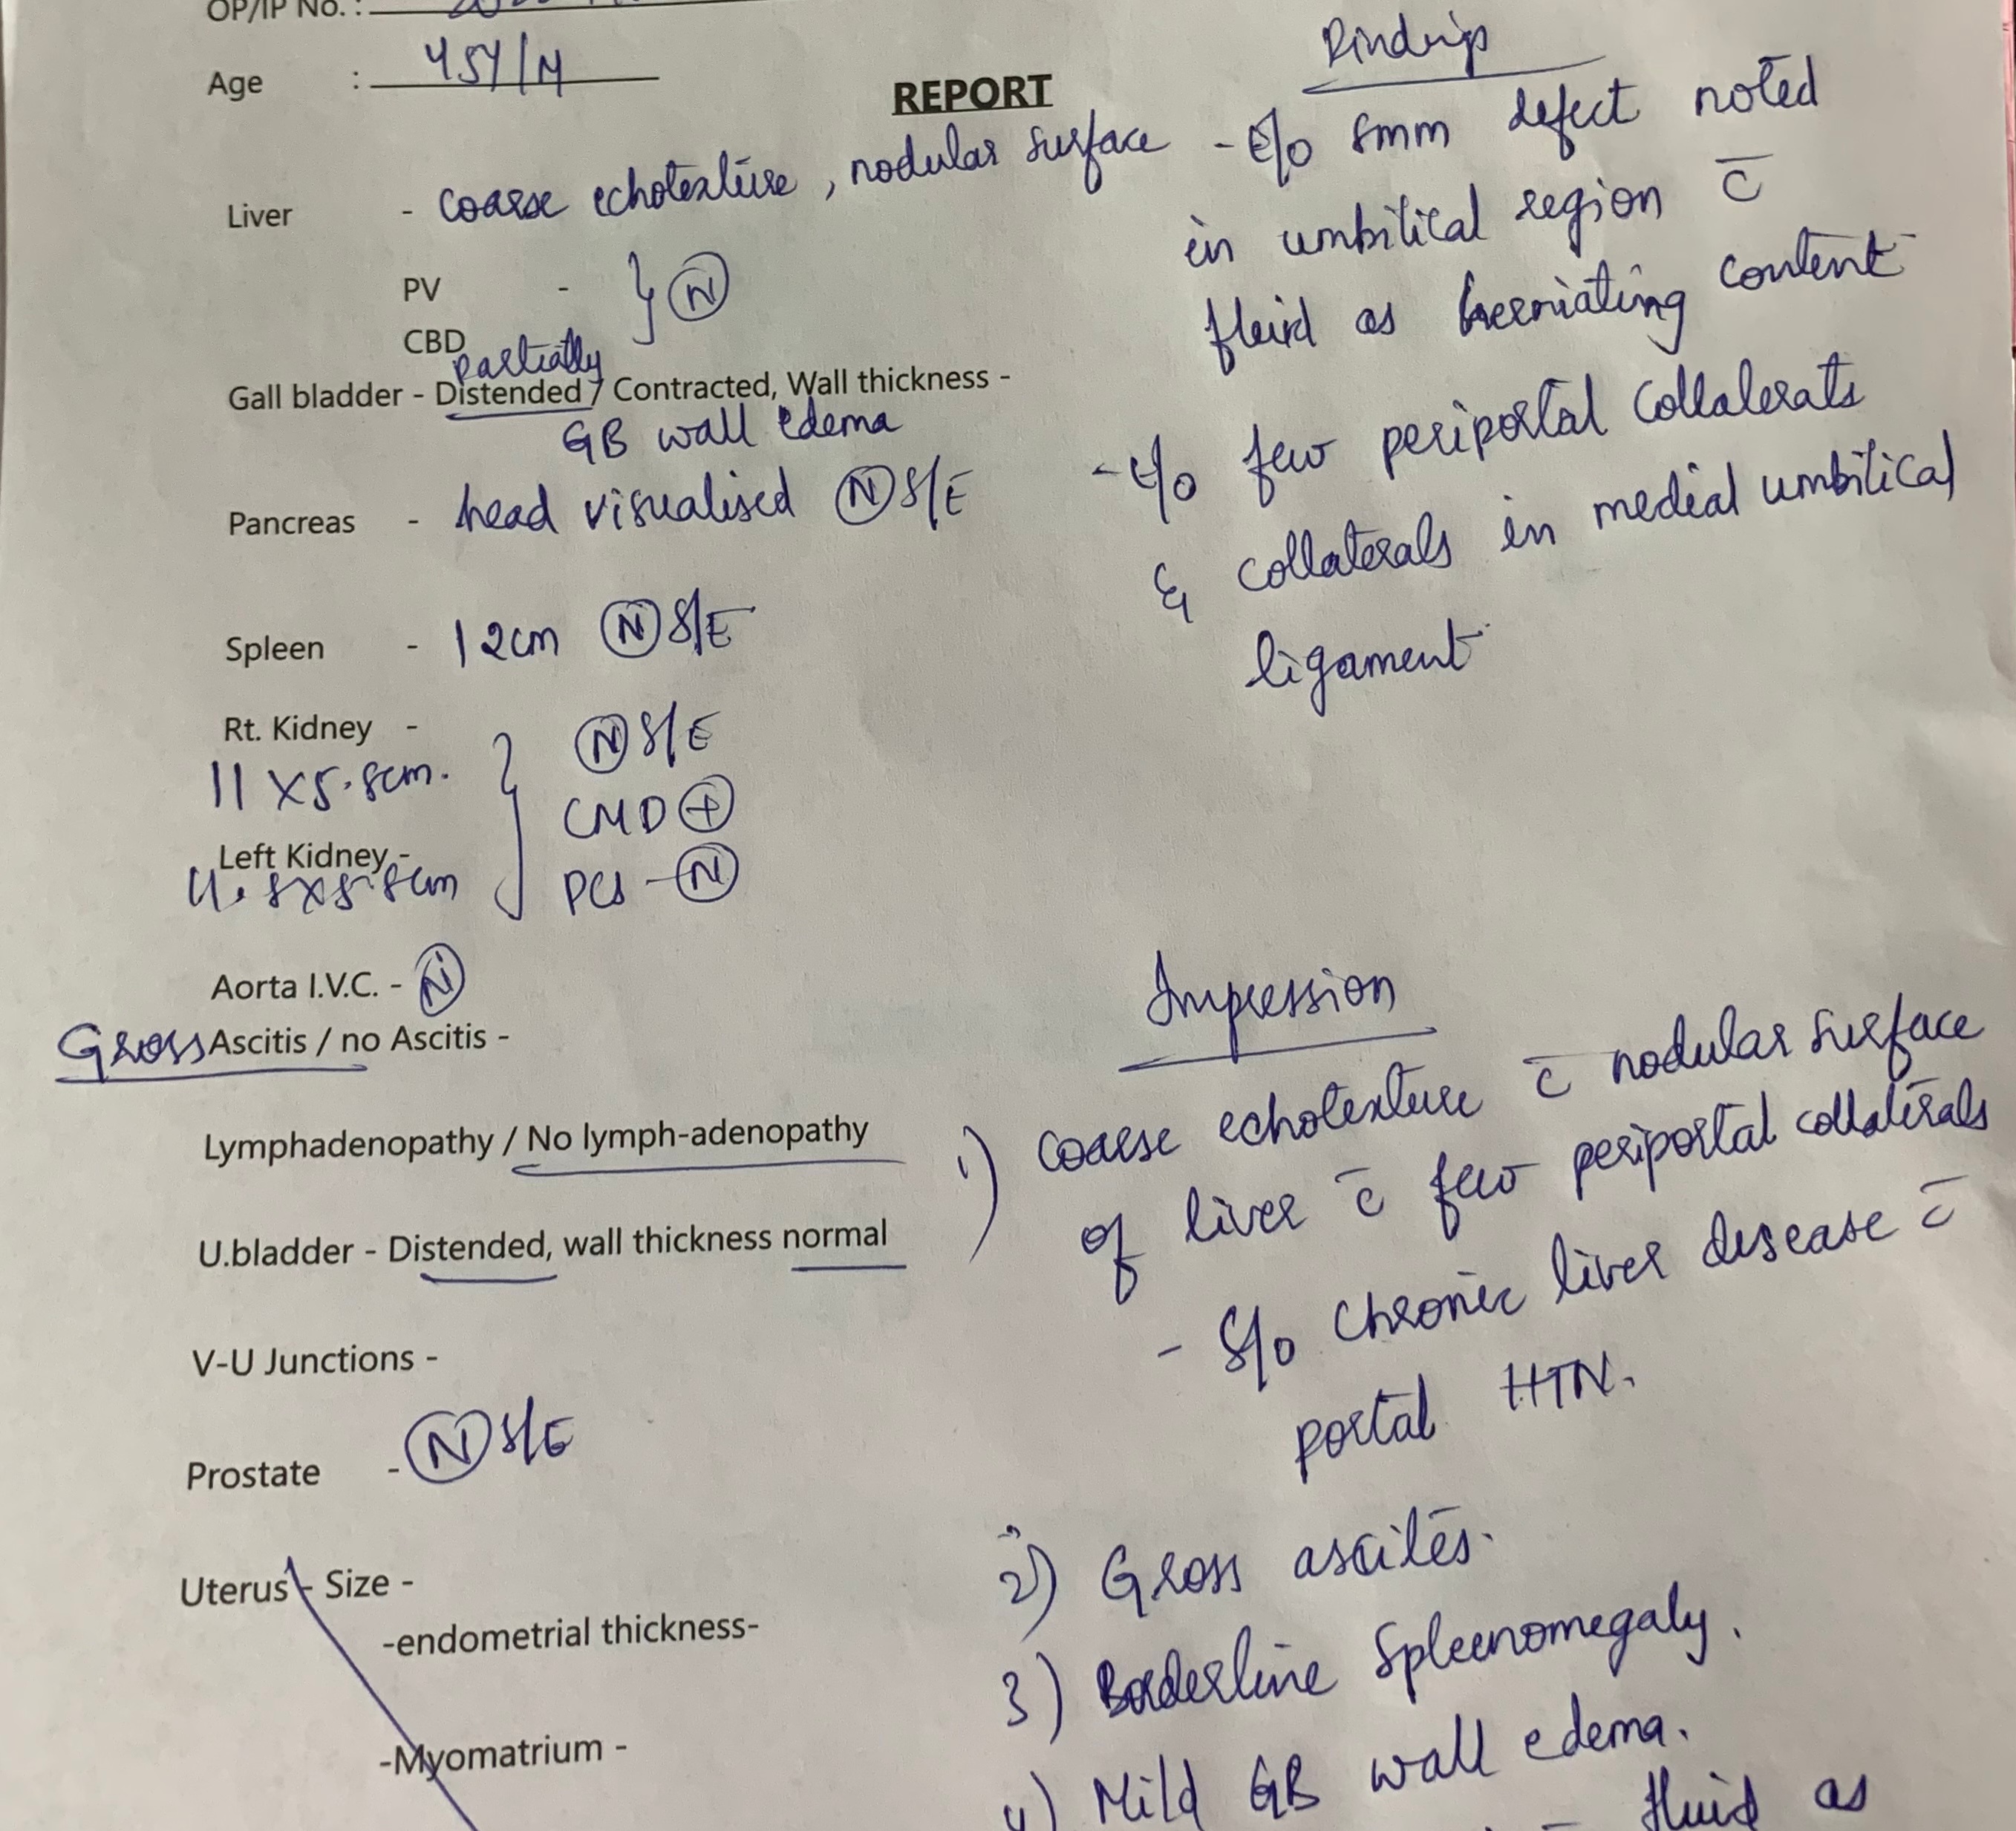 OP/IP No. :
Age : 45Y/M
REPORT
Liver - coarse echotexture, nodular surface
PV -
CBD } N
partially
Gall bladder - Distended / Contracted, Wall thickness -
GB wall edema
Pancreas - head visualised N S/E
Spleen - 12cm N S/E
Rt. Kidney - N S/E
11 X5.8cm. CMD +
Left Kidney -
PCS - N
Aorta I.V.C. - N
Gross Ascitis / no Ascitis -
Lymphadenopathy / No lymph-adenopathy
U.bladder - Distended, wall thickness normal
V-U Junctions -
Prostate - N S/E
Uterus - Size -
-endometrial thickness-
-Myomatrium -
Findings
- E/o 8mm defect noted
in umbilical region c̄
fluid as herniating content
- E/o few periportal collaterals
& collaterals in medial umbilical
ligament
Impression
1) coarse echotexture c̄ nodular surface
of liver c̄ few periportal collaterals
- S/o chronic liver disease c̄
portal HTN.
2) Gross ascites.
3) Borderline Spleenomegaly.
4) Mild GB wall edema.
fluid as